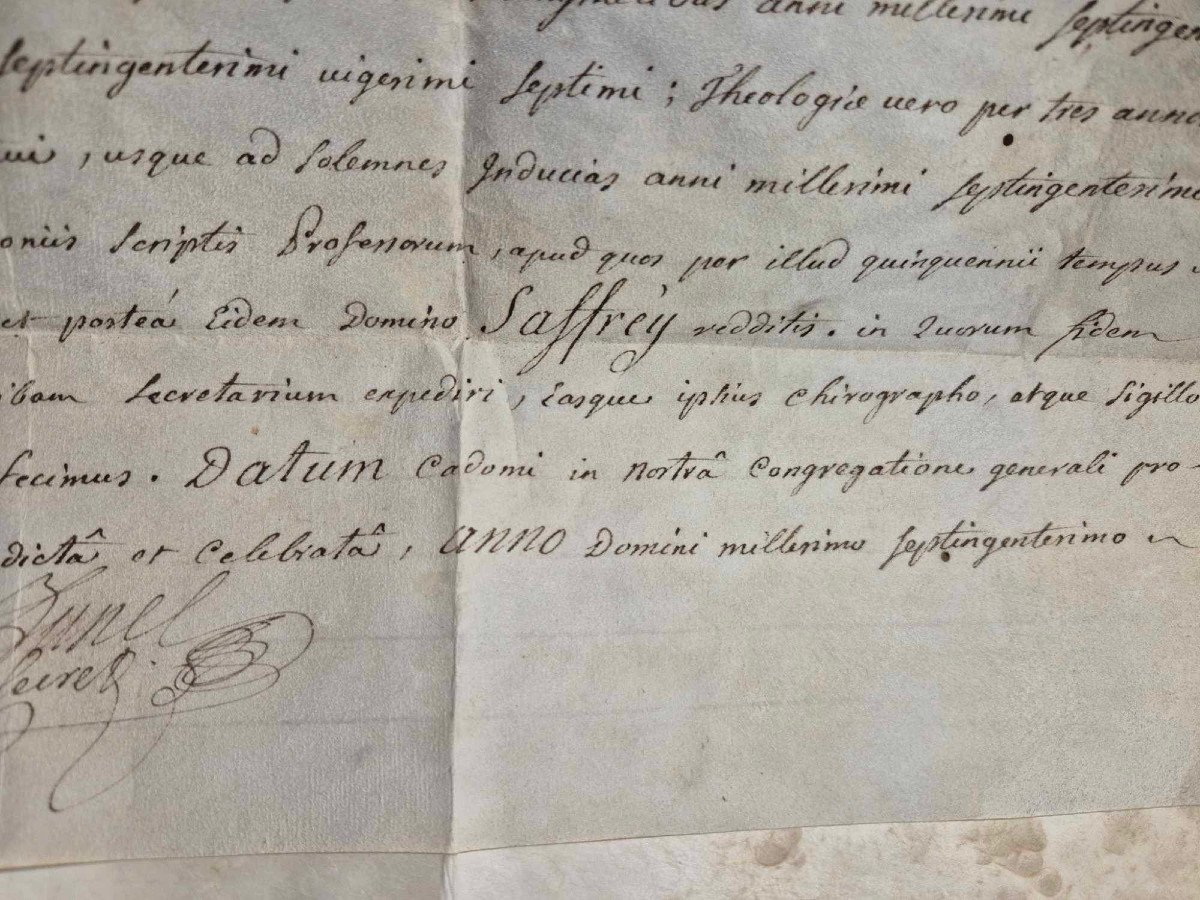 anni millesimi septingen
septingentesimi vigesimi septimi ; Theologiæ vero per tres anno
tui , usque ad solemnes Inducias anni millesimi septingentesimo
oniis scriptis Professorum , apud quos per illud quinquennii tempus
et posteá Eidem Domino Saffrey redditis . in Quorum fidem
ibam secretarium expediri , Easque ipsius chirographo , atque sigillo
fecimus . Datum cadomi in nostrâ congregatione generali pro-
dictâ et celebratâ , anno Domini millesimo septingentesimo
secret